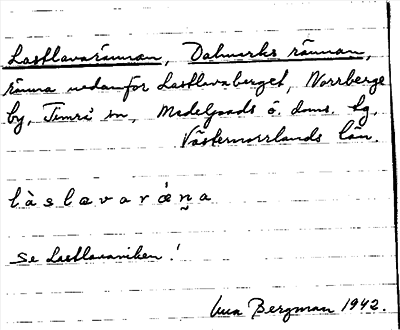 Lastlavarännan, Dalmarks rännan,
ränna nedanför Lastlavaberget, Norrberge
by, Timrå sn, Medelpads ö. doms. tg,
Västernorrlands län.
làslævarǽn̰a
Se Lastlavaviken!
Bergman 1942.